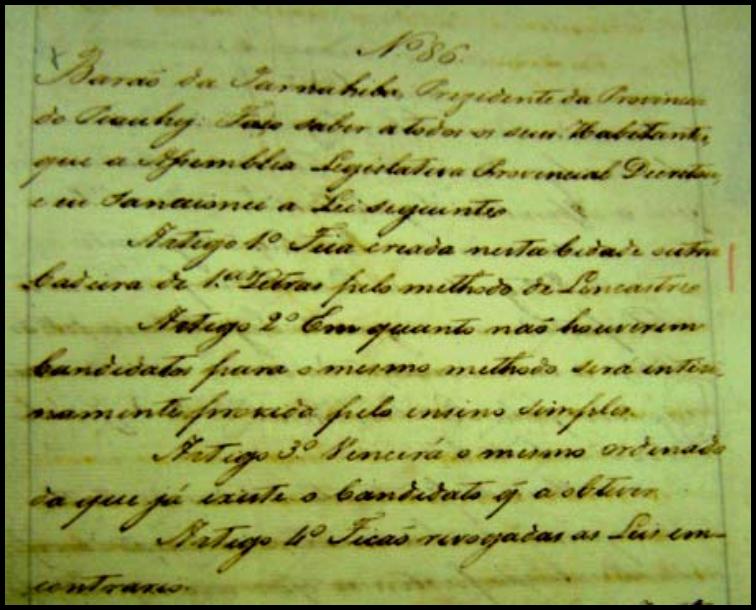 Nº 86.
Baraõ da Parnahiba, Prezidente da Provincia
do Piauhy: Faço saber a todos os seus Habitantes,
que a Assemblea Legislativa Provincial Decretou,
e eu Sancionei a Lei seguinte
Artigo 1.º Fica creada nesta Cidade outra
Cadeira de 1.as Letras pelo methodo de Lencastre
Artigo 2º Em quanto naõ houverem
Candidatos para o mesmo methodo será interi-
namente provida pelo ensino simples.
Artigo 3.º Vencerá o mesmo ordenado
da que já existe o Candidato q̃ a obtiver.
Artigo 4º Ficaõ revogadas as Leis em
contrario.